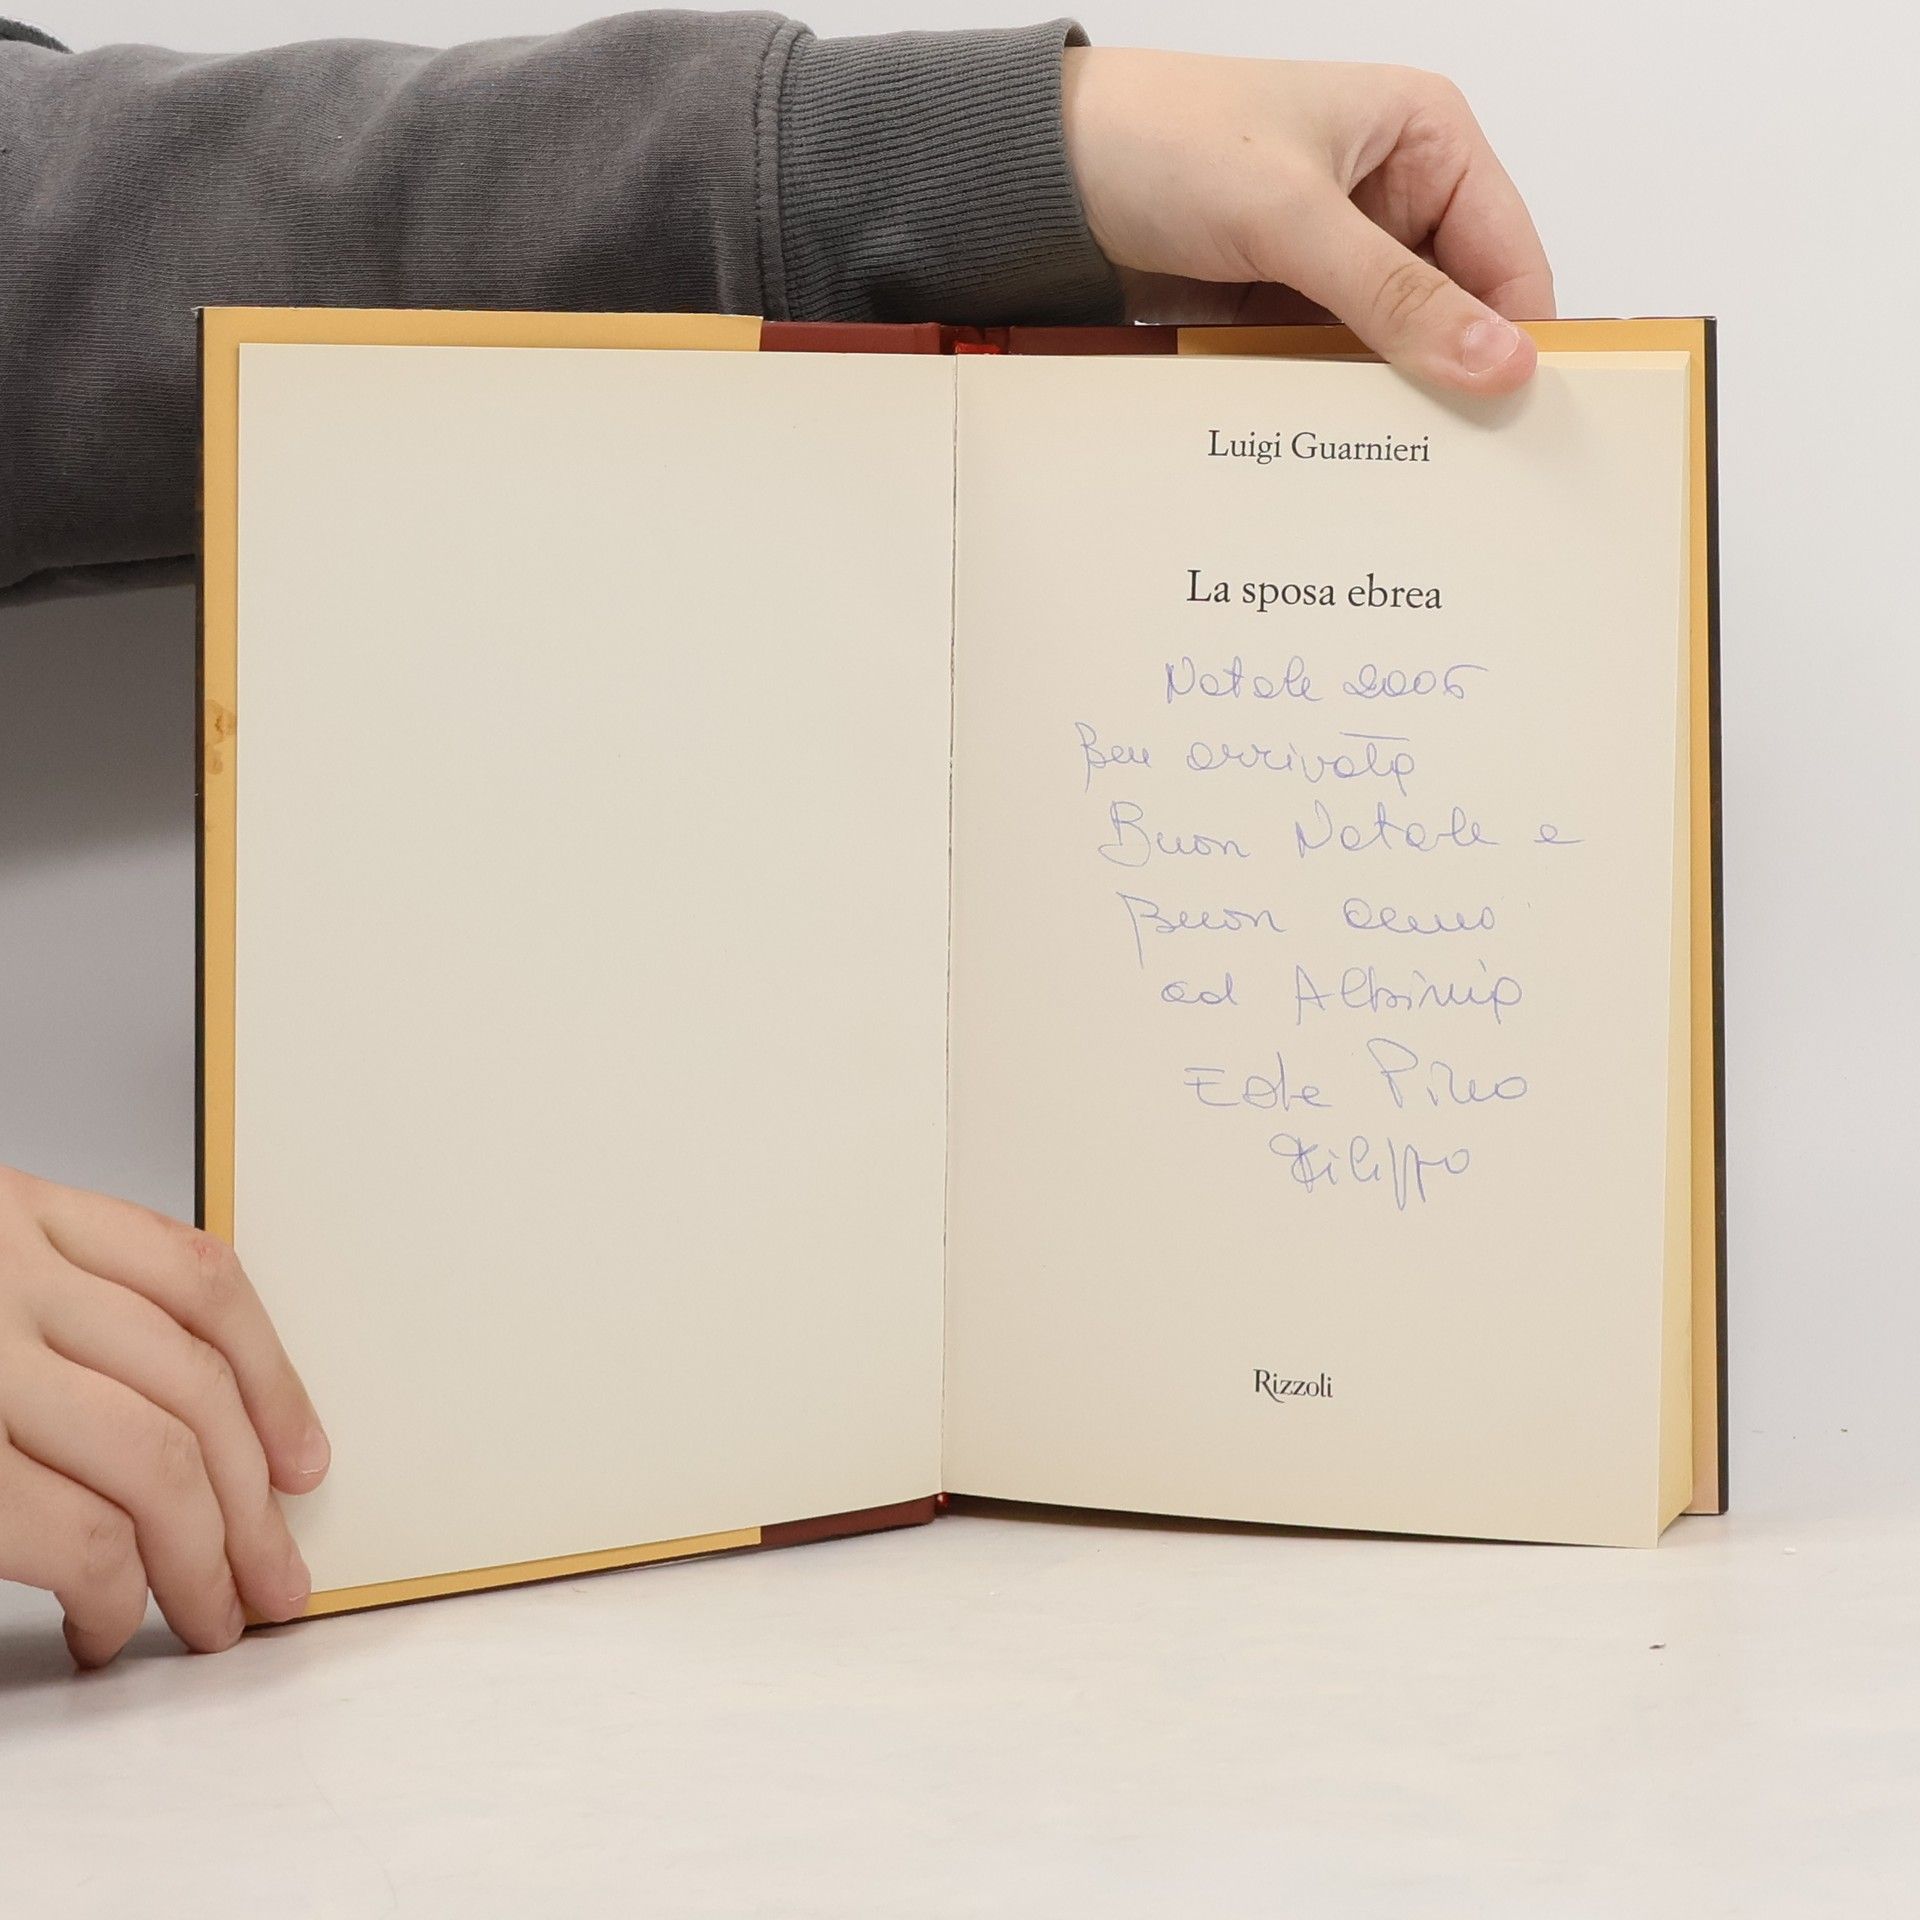 Luigi Guarnieri
La sposa ebrea
Natale 2006
Ben arrivata
Buon Natale e
Buon anno
ad Albinia
Pino
Filippo
Rizzoli